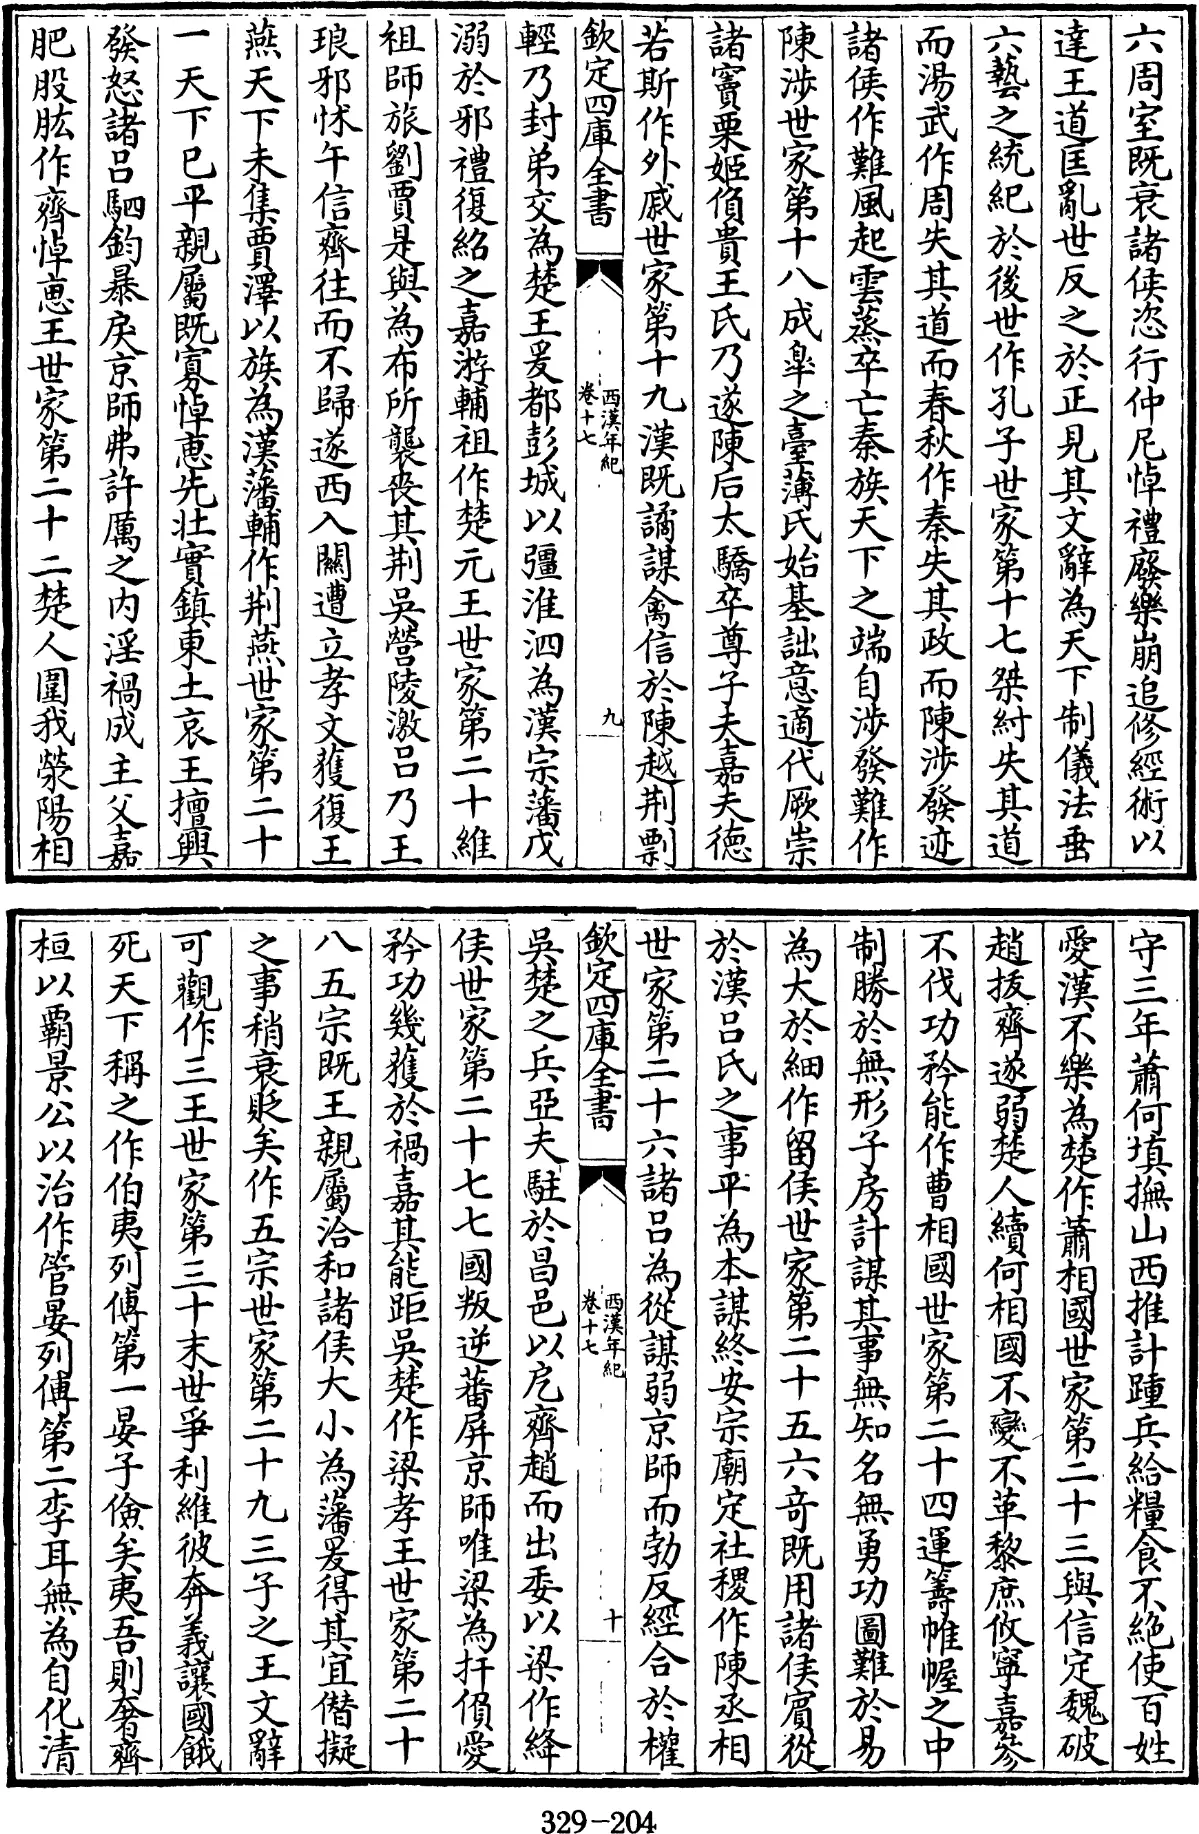 六周室既衰諸侯恣行仲尼悼禮廢樂崩追修經術以
達王道匡亂世反之於正見其文辭為天下制儀法垂
六藝之統紀於後世作孔子世家第十七桀紂失其道
而湯武作周失其道而春秋作秦失其政而陳涉發迹
諸侯作難風起雲蒸卒亡秦族天下之端自涉發難作
陳涉世家第十八成皐之臺薄氏始基詘意適代厥崇
諸竇栗姬偩貴王氏乃遂陳后太驕卒尊子夫嘉夫德
若斯作外戚世家第十九漢既譎謀禽信於陳越荆剽
欽定四庫全書
西漢年紀
卷十七
九
輕乃封弟交為楚王爰都彭城以彊淮泗為漢宗藩戊
溺於邪禮復紹之嘉游輔祖作楚元王世家第二十維
祖師旅劉賈是與為布所襲喪其荆吳營陵激吕乃王
琅邪怵午信齊往而不歸遂西入關遭立孝文獲復王
燕天下未集賈澤以族為漢藩輔作荆燕世家第二十
一天下已平親屬既寡悼恵先壯實鎮東土哀王擅興
發怒諸吕駟鈞暴戾京師弗許厲之内淫禍成主父嘉
肥股肱作齊悼恵王世家第二十二楚人圍我滎陽相
守三年蕭何填撫山西推計踵兵給糧食不絶使百姓
愛漢不樂為楚作蕭相國世家第二十三與信定魏破
趙拔齊遂弱楚人續何相國不變不革黎庶攸寧嘉參
不伐功矜能作曹相國世家第二十四運籌帷幄之中
制勝於無形子房計謀其事無知名無勇功圖難於易
為大於細作留侯世家第二十五六竒既用諸侯賓從
於漢吕氏之事平為本謀終安宗廟定社稷作陳丞相
世家第二十六諸吕為從謀弱京師而勃反經合於權
欽定四庫全書
西漢年紀
卷十七
十
吳楚之兵亞夫駐於昌邑以戹齊趙而出委以梁作絳
侯世家第二十七七國叛逆蕃屏京師唯梁為扞偩愛
矜功幾獲於禍嘉其能距吳楚作梁孝王世家第二十
八五宗既王親屬洽和諸侯大小為藩爰得其宜僭擬
之事稍衰貶矣作五宗世家第二十九三子之王文辭
可觀作三王世家第三十末世爭利維彼奔義讓國餓
死天下稱之作伯夷列傳第一晏子儉矣夷吾則奢齊
桓以霸景公以治作管晏列傳第二李耳無為自化清
329-204